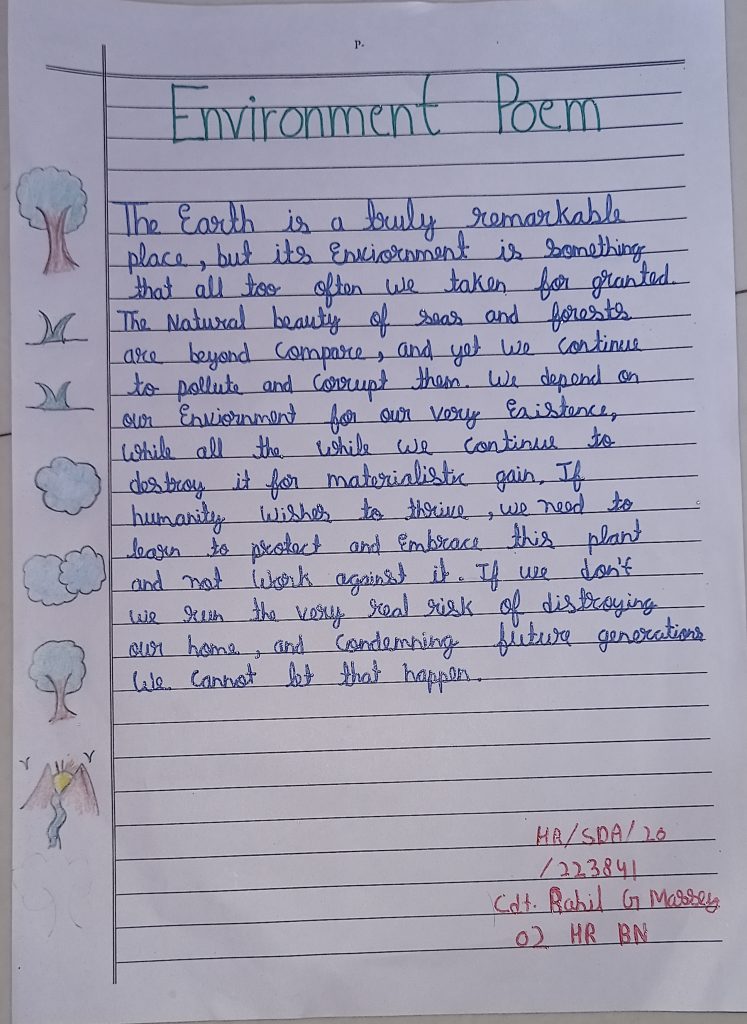 P.
Environment Poem
The Earth is a truly remarkable
place, but its Enviornment is something
that all too often we taken for granted.
The Natural beauty of seas and forests
are beyond Compare, and yet we Continue
to pollute and Corrupt them. We depend on
our Enviornment for our very Existence,
While all the While we Continue to
destroy it for materialistic gain. If
humanity Wishes to thrive, we need to
learn to protect and Embrace this plant
and not Work against it. If we don't
we run the very real risk of distroying
our home, and Condemning future generations
We Cannot let that happen.
HR/SDA/20
/223841
Cdt. Rahil G Massey
02 HR BN